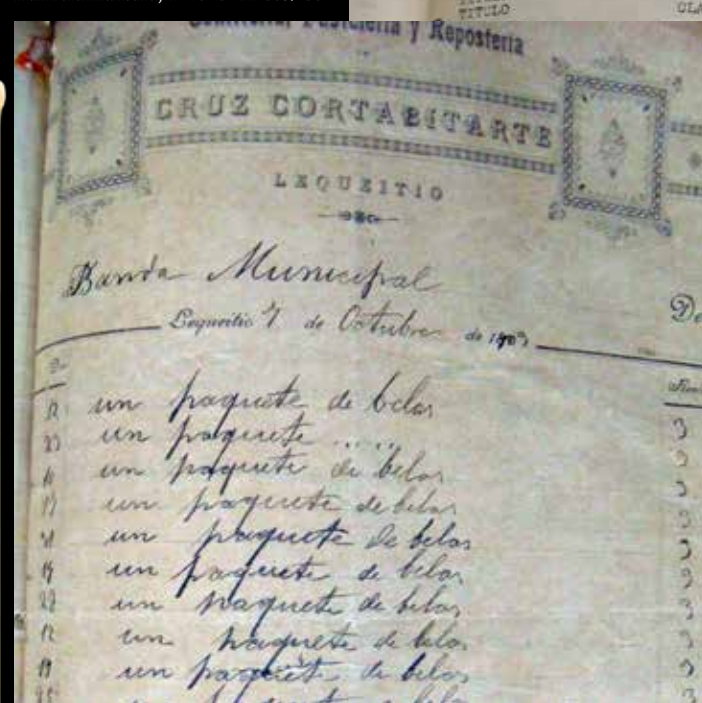 TITULO
Confitería, Pastelería y Repostería
CRUZ CORTABITARTE
LEQUEITIO
Banda Municipal
Lequeitio 7 de Octubre de 1903
De
un paquete de belas
23 un paquete .......
un paquete de belas
17 un paquete de belas
un paquete de belas
un paquete de belas
un paquete de belas
12 un paquete de belas
19 un paquete de belas
25 un paquete de belas
3
3
3
3
3
3
3
3
3
3